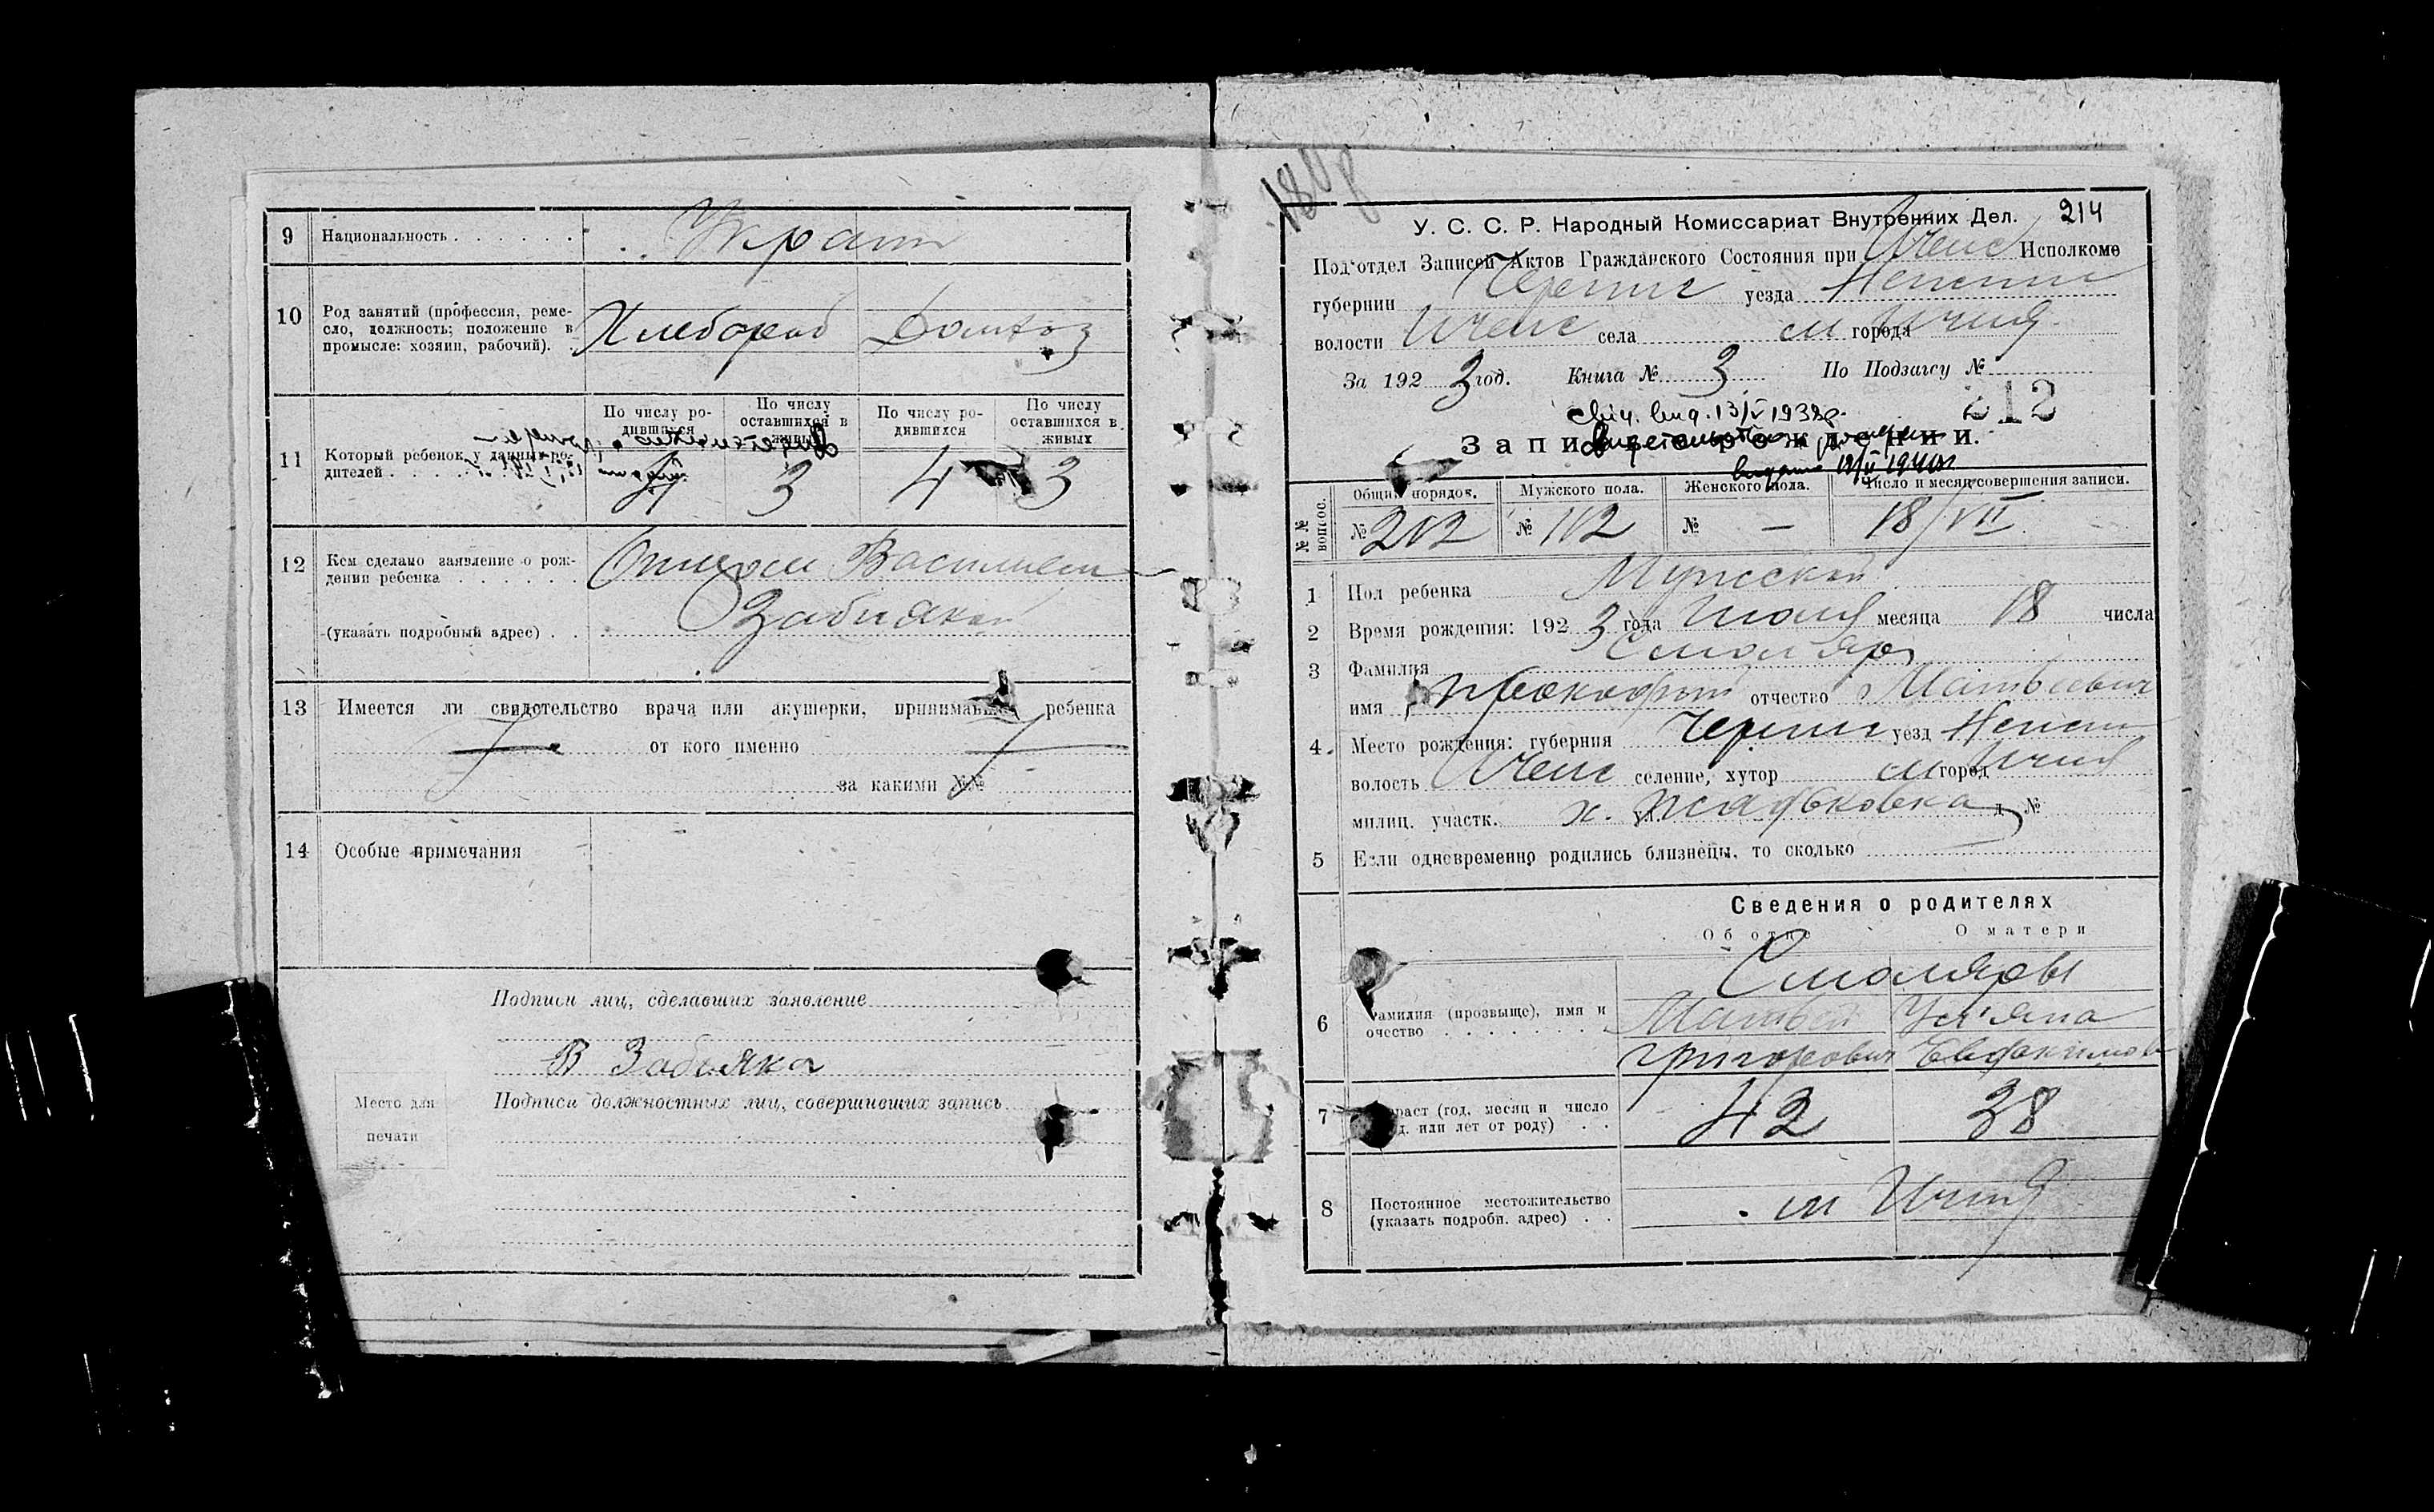 9 Национальность . . . . . . Украин
10 Род занятий (профессия, реме-
сло, должность; положение в
промысле: хозяин, рабочий). . Хлебороб Домхоз
По числу ро-
дившихся
По числу
оставшихся в
живых
По числу ро-
дившихся
По числу
оставшихся в
живых
11 Который ребенок у данных ро-
дителей . . . . . 4 3 4 3
12 Кем сделано заявление о рож-
дении ребенка . . . . . . Василием
Забиякой
(указать подробный адрес) . .
13 Имеется ли свидетельство врача или акушерки, принимавш ребенка
от кого именно
за какими №№
14 Особые примечания
Подписи лиц, сделавших заявление
В Забияка
Место для
печати
Подписи должностных лиц, совершивших запись
180
214
У. С. С. Р. Народный Комиссариат Внутренних Дел.
Под'отдел Записей Актов Гражданского Состояния при Ичнс Исполкоме
губернии Черниг уезда Нежин
волости Ичнс села м города Ичня
За 192 3 год. Книга № 3 По Подзагсу №
212
Свид. выд. 13/V 1938р.
Запись о рождении.
№№ вопрос.
Общий порядк. Мужского пола. Женского пола. Число и месяц совершения записи.
№ 212 № 112 № — 18/VII
1 Пол ребенка Мужской
2 Время рождения: 192 3 года Июля месяца 18 числа
3 Фамилия Смоляр
имя Прокофий отчество Матвеевич
4. Место рождения: губерния Черниг уезд Нежин
волость Ичнс селение, хутор м город Ичня
милиц. участк. х. ул. д №
5 Если одновременно родились близнецы, то сколько
Сведения о родителях
Об отце О матери
Смоляры
6 Фамилия (прозвыще), имя и
очество . . . . . . . Матвей Ульяна
Григорович Евдокимов
7 Возраст (год, месяц и число
д. или лет от роду) . . 42 38
8 Постоянное местожительство
(указать подробн. адрес) . . м Ичня